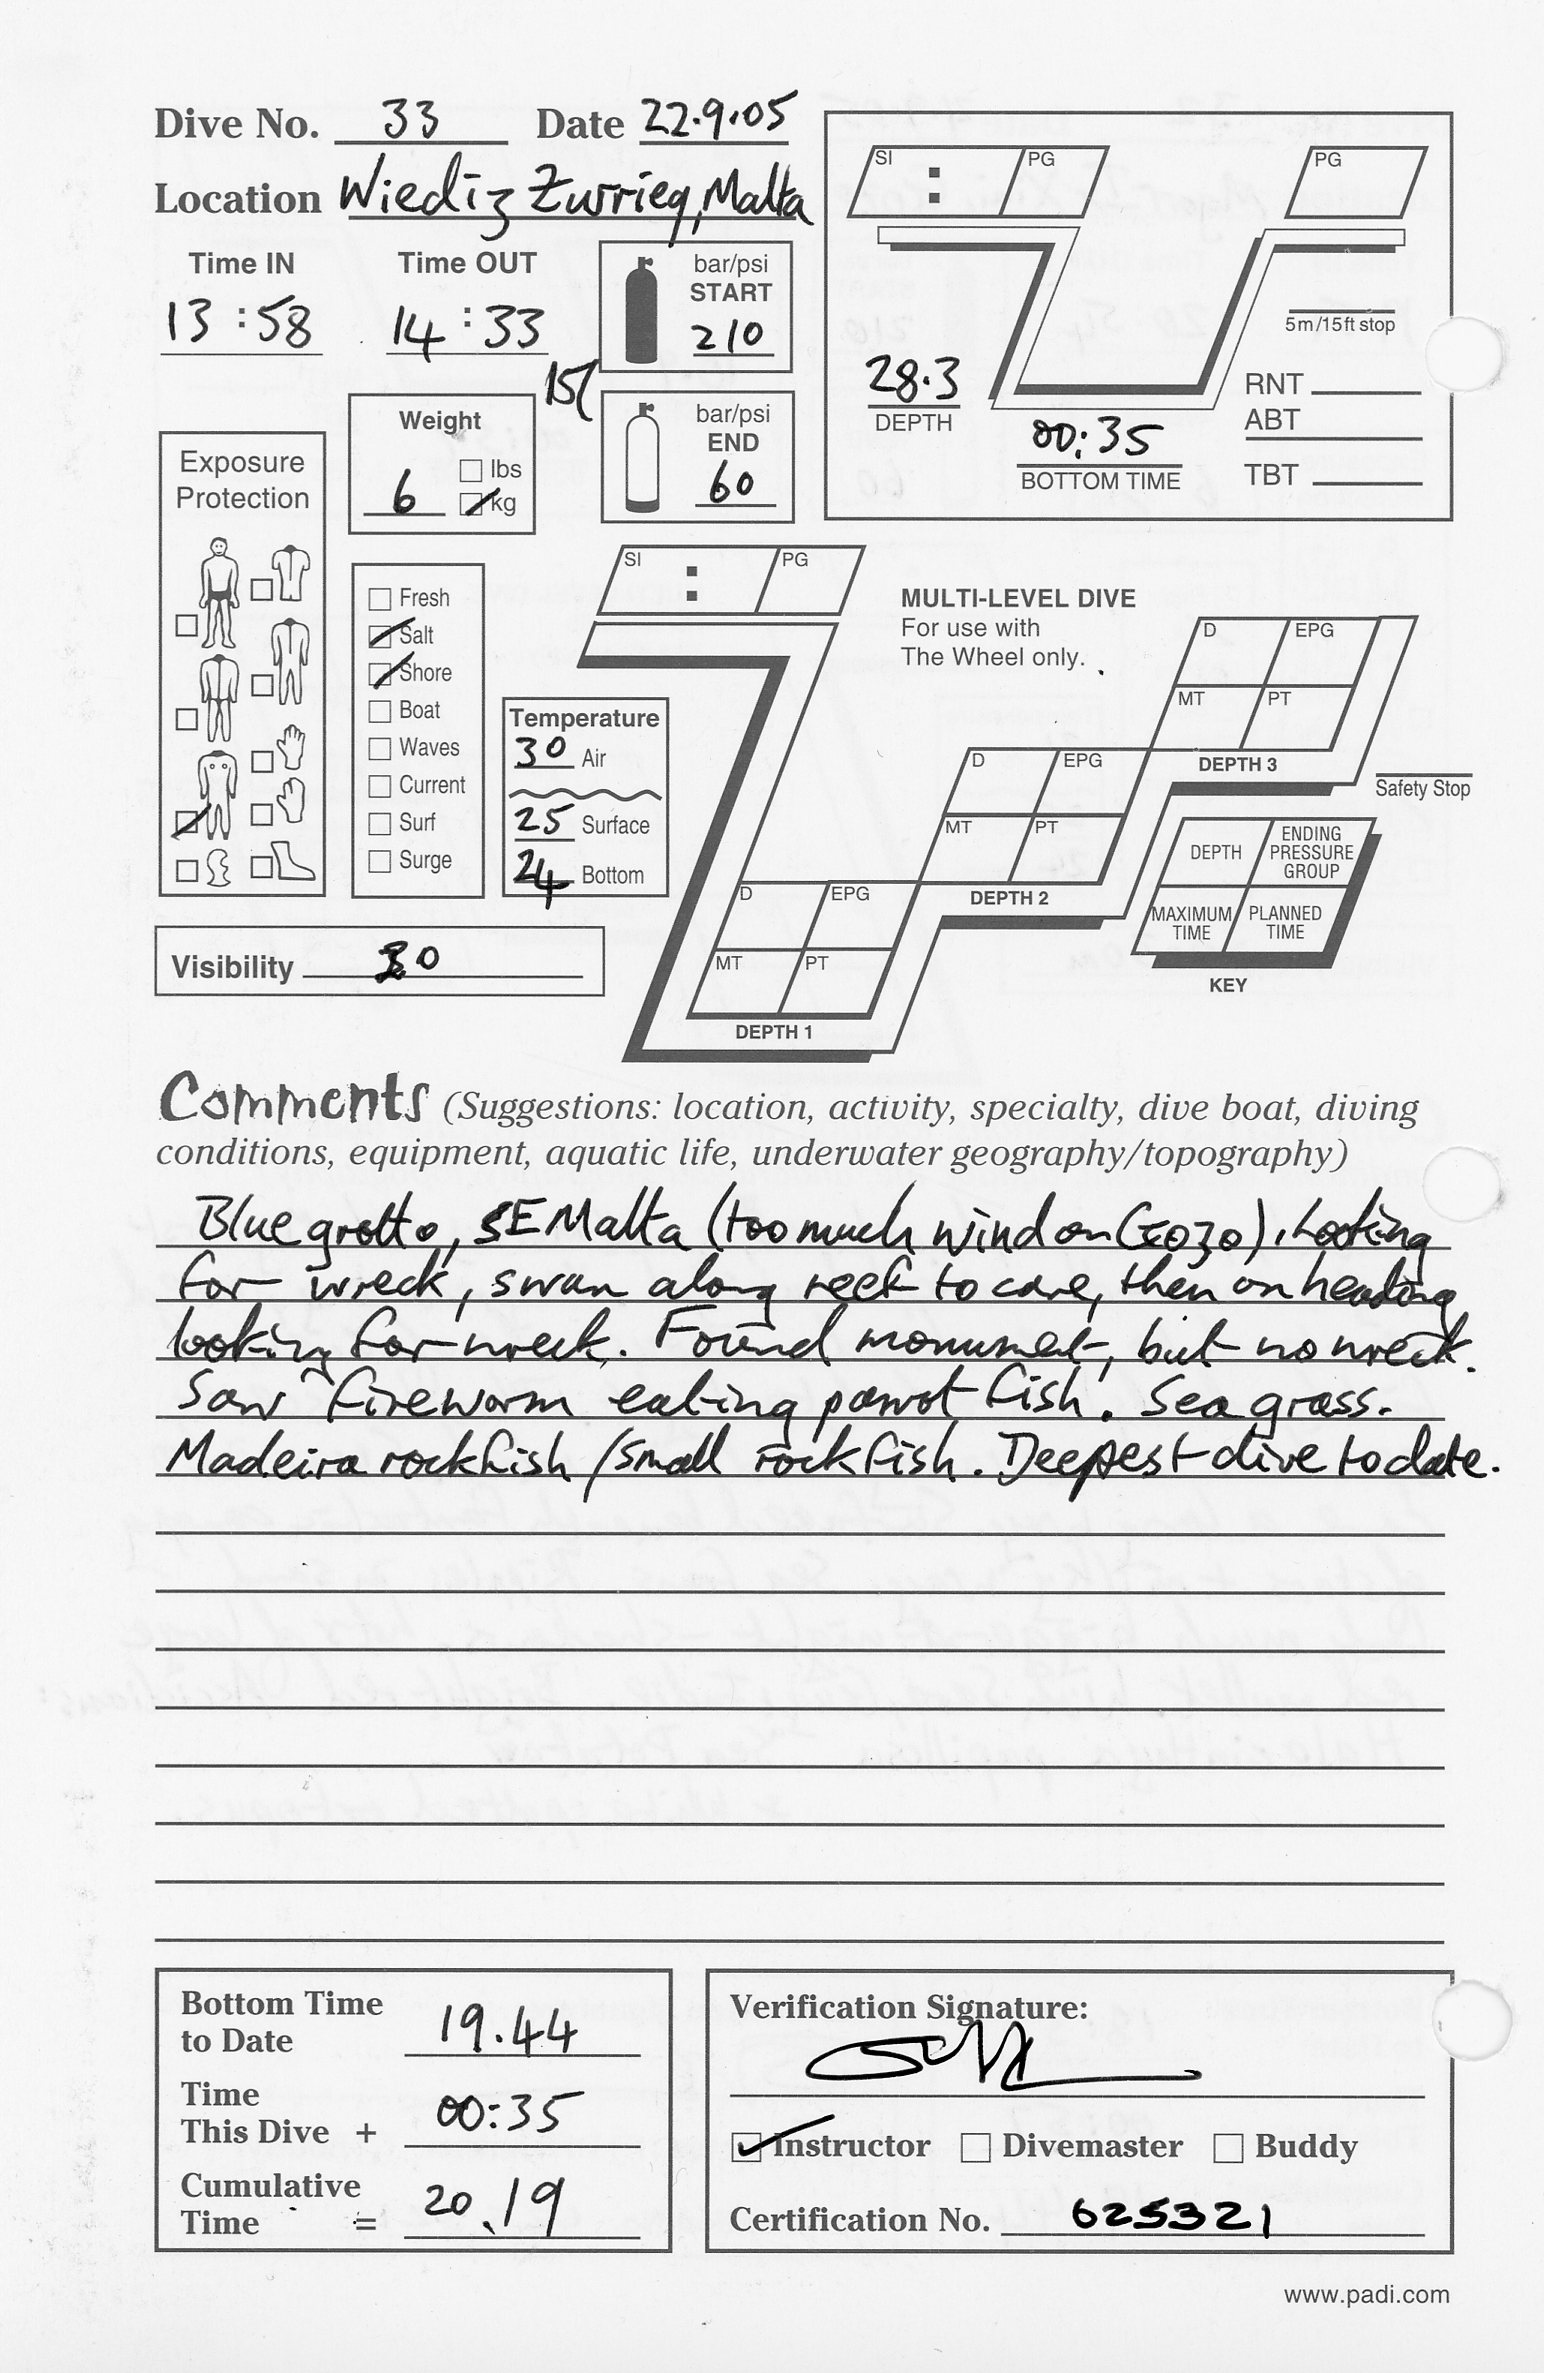 Dive No. 33 Date 22.9.05
Location Wied iz Zurrieq, Malta
Time IN 13:58
Time OUT 14:33
bar/psi START 210
15l
bar/psi END 60
Weight 6 lbs kg
Exposure Protection
Fresh
Salt
Shore
Boat
Waves
Current
Surf
Surge
Temperature
30 Air
25 Surface
24 Bottom
Visibility 30
SI : PG PG
5m/15ft stop
28.3 DEPTH
00:35 BOTTOM TIME
RNT
ABT
TBT
SI : PG
MULTI-LEVEL DIVE
For use with
The Wheel only.
D EPG
MT PT
DEPTH 1
D EPG
MT PT
DEPTH 2
D EPG
MT PT
DEPTH 3
Safety Stop
DEPTH ENDING PRESSURE GROUP
MAXIMUM TIME PLANNED TIME
KEY
Comments (Suggestions: location, activity, specialty, dive boat, diving
conditions, equipment, aquatic life, underwater geography/topography)
Blue grotto, SE Malta (too much wind on Gozo). Looking
for wreck, swam along reef to cave, then on heading
looking for wreck. Found monument, but no wreck.
Saw fireworm eating parrot fish. Sea grass.
Madeira rockfish/small rockfish. Deepest dive to date.
Bottom Time to Date 19.44
Time This Dive + 00:35
Cumulative Time = 20.19
Verification Signature:
Instructor Divemaster Buddy
Certification No. 625321
www.padi.com